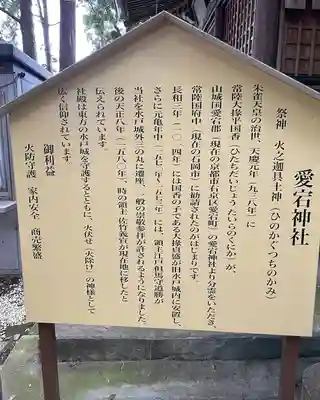 愛宕神社
祭神 火之迦具土神(ひのかぐつちのかみ)
朱雀天皇の治世、天慶元年(九三八年)に
常陸大掾平国香(ひたちだいじょうたいらのくにか)が、
山城国愛宕郡(現在の京都市右京区愛宕町)の愛宕神社より分霊をいただき、
常陸国府中(現在の石岡市)に勧請されたのがはじまりです。
長和三年(一〇一四年)には国香の子である大掾貞盛が旧水戸城内に安置し、
さらに元亀年中(一五七〇年~一五七三年)には、領主江戸但馬守道勝が
当社を水戸城外三の丸に遷座、一般の崇敬参拝が許されるようになりました。
後の天正八年(一五八〇年)、時の領主佐竹義宣が現在地に移したと
伝えられています。
社殿は東方の水戸城を守護するとともに、火伏せ(火除け)の神様として
広く信仰されています。
御利益
火防守護 家内安全 商売繁盛